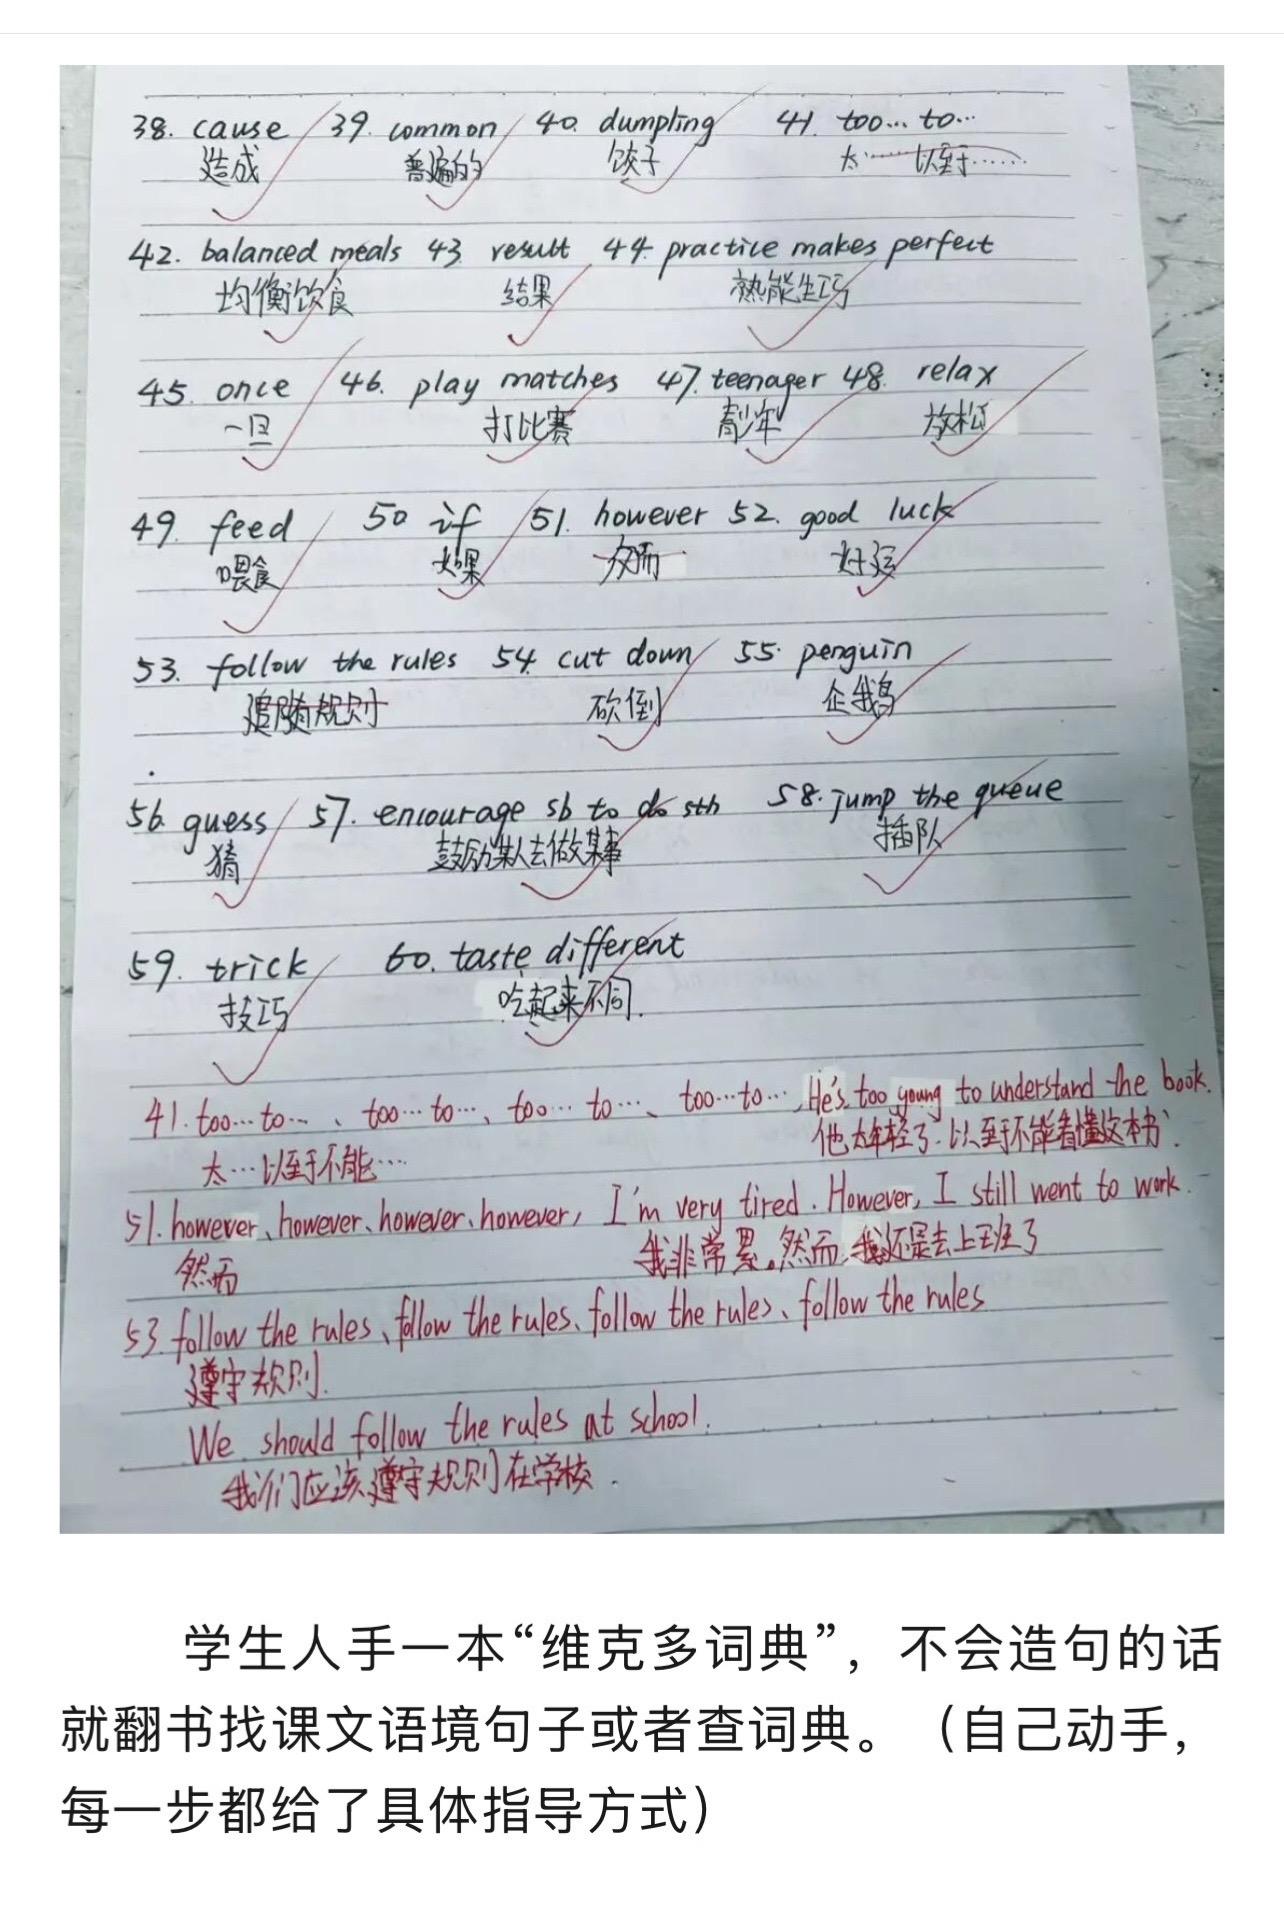 38. cause 39. common 40. dumpling 41. too... to...
造成 普遍的 饺子 太……以至于……
42. balanced meals 43. result 44. practice makes perfect
均衡饮食 结果 熟能生巧
45. once 46. play matches 47. teenager 48. relax
一旦 打比赛 青少年 放松
49. feed 50 if 51. however 52. good luck
喂食 如果 好运
53. follow the rules 54. cut down 55. penguin
追随规则 砍倒 企鹅
56. guess 57. encourage sb to do sth 58. jump the queue
猜 鼓励某人去做某事 插队
59. trick 60. taste different
技巧 吃起来不同.
41. too...to...、too...to...、too...to...、too...to..., He's too young to understand the book.
太…以至于不能… 他太年轻了以至于不能看懂这本书.
51. however、however、however、however, I'm very tired. However, I still went to work.
然而 我非常累。然而,我还是去上班了
53. follow the rules、follow the rules、follow the rules、follow the rules
遵守规则.
We should follow the rules at school.
我们应该遵守规则在学校.
学生人手一本“维克多词典”，不会造句的话
就翻书找课文语境句子或者查词典。（自己动手，
每一步都给了具体指导方式）